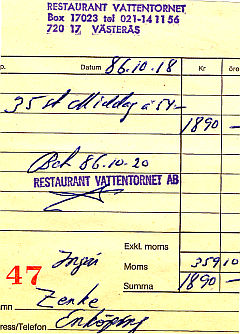 RESTAURANT VATTENTORNET
Box 17023 tel 021-141156
720 17 VÄSTERÅS
p. Datum 86.10.18 Kr öre
35 st Middag à 54,-
1890 -
Bet 86.10.20
RESTAURANT VATTENTORNET AB
Exkl. moms
47 Moms 359 10
Summa 1890 -
mn Zenke
ress/Telefon Enköping